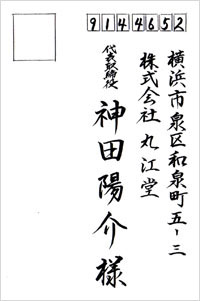 9144652
横浜市泉区和泉町五-三
株式会社 丸江堂
代表取締役
神田陽介様